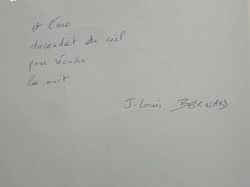 et l'arc
descendait du ciel
pour réciter
la nuit
J-Louis BERNARD